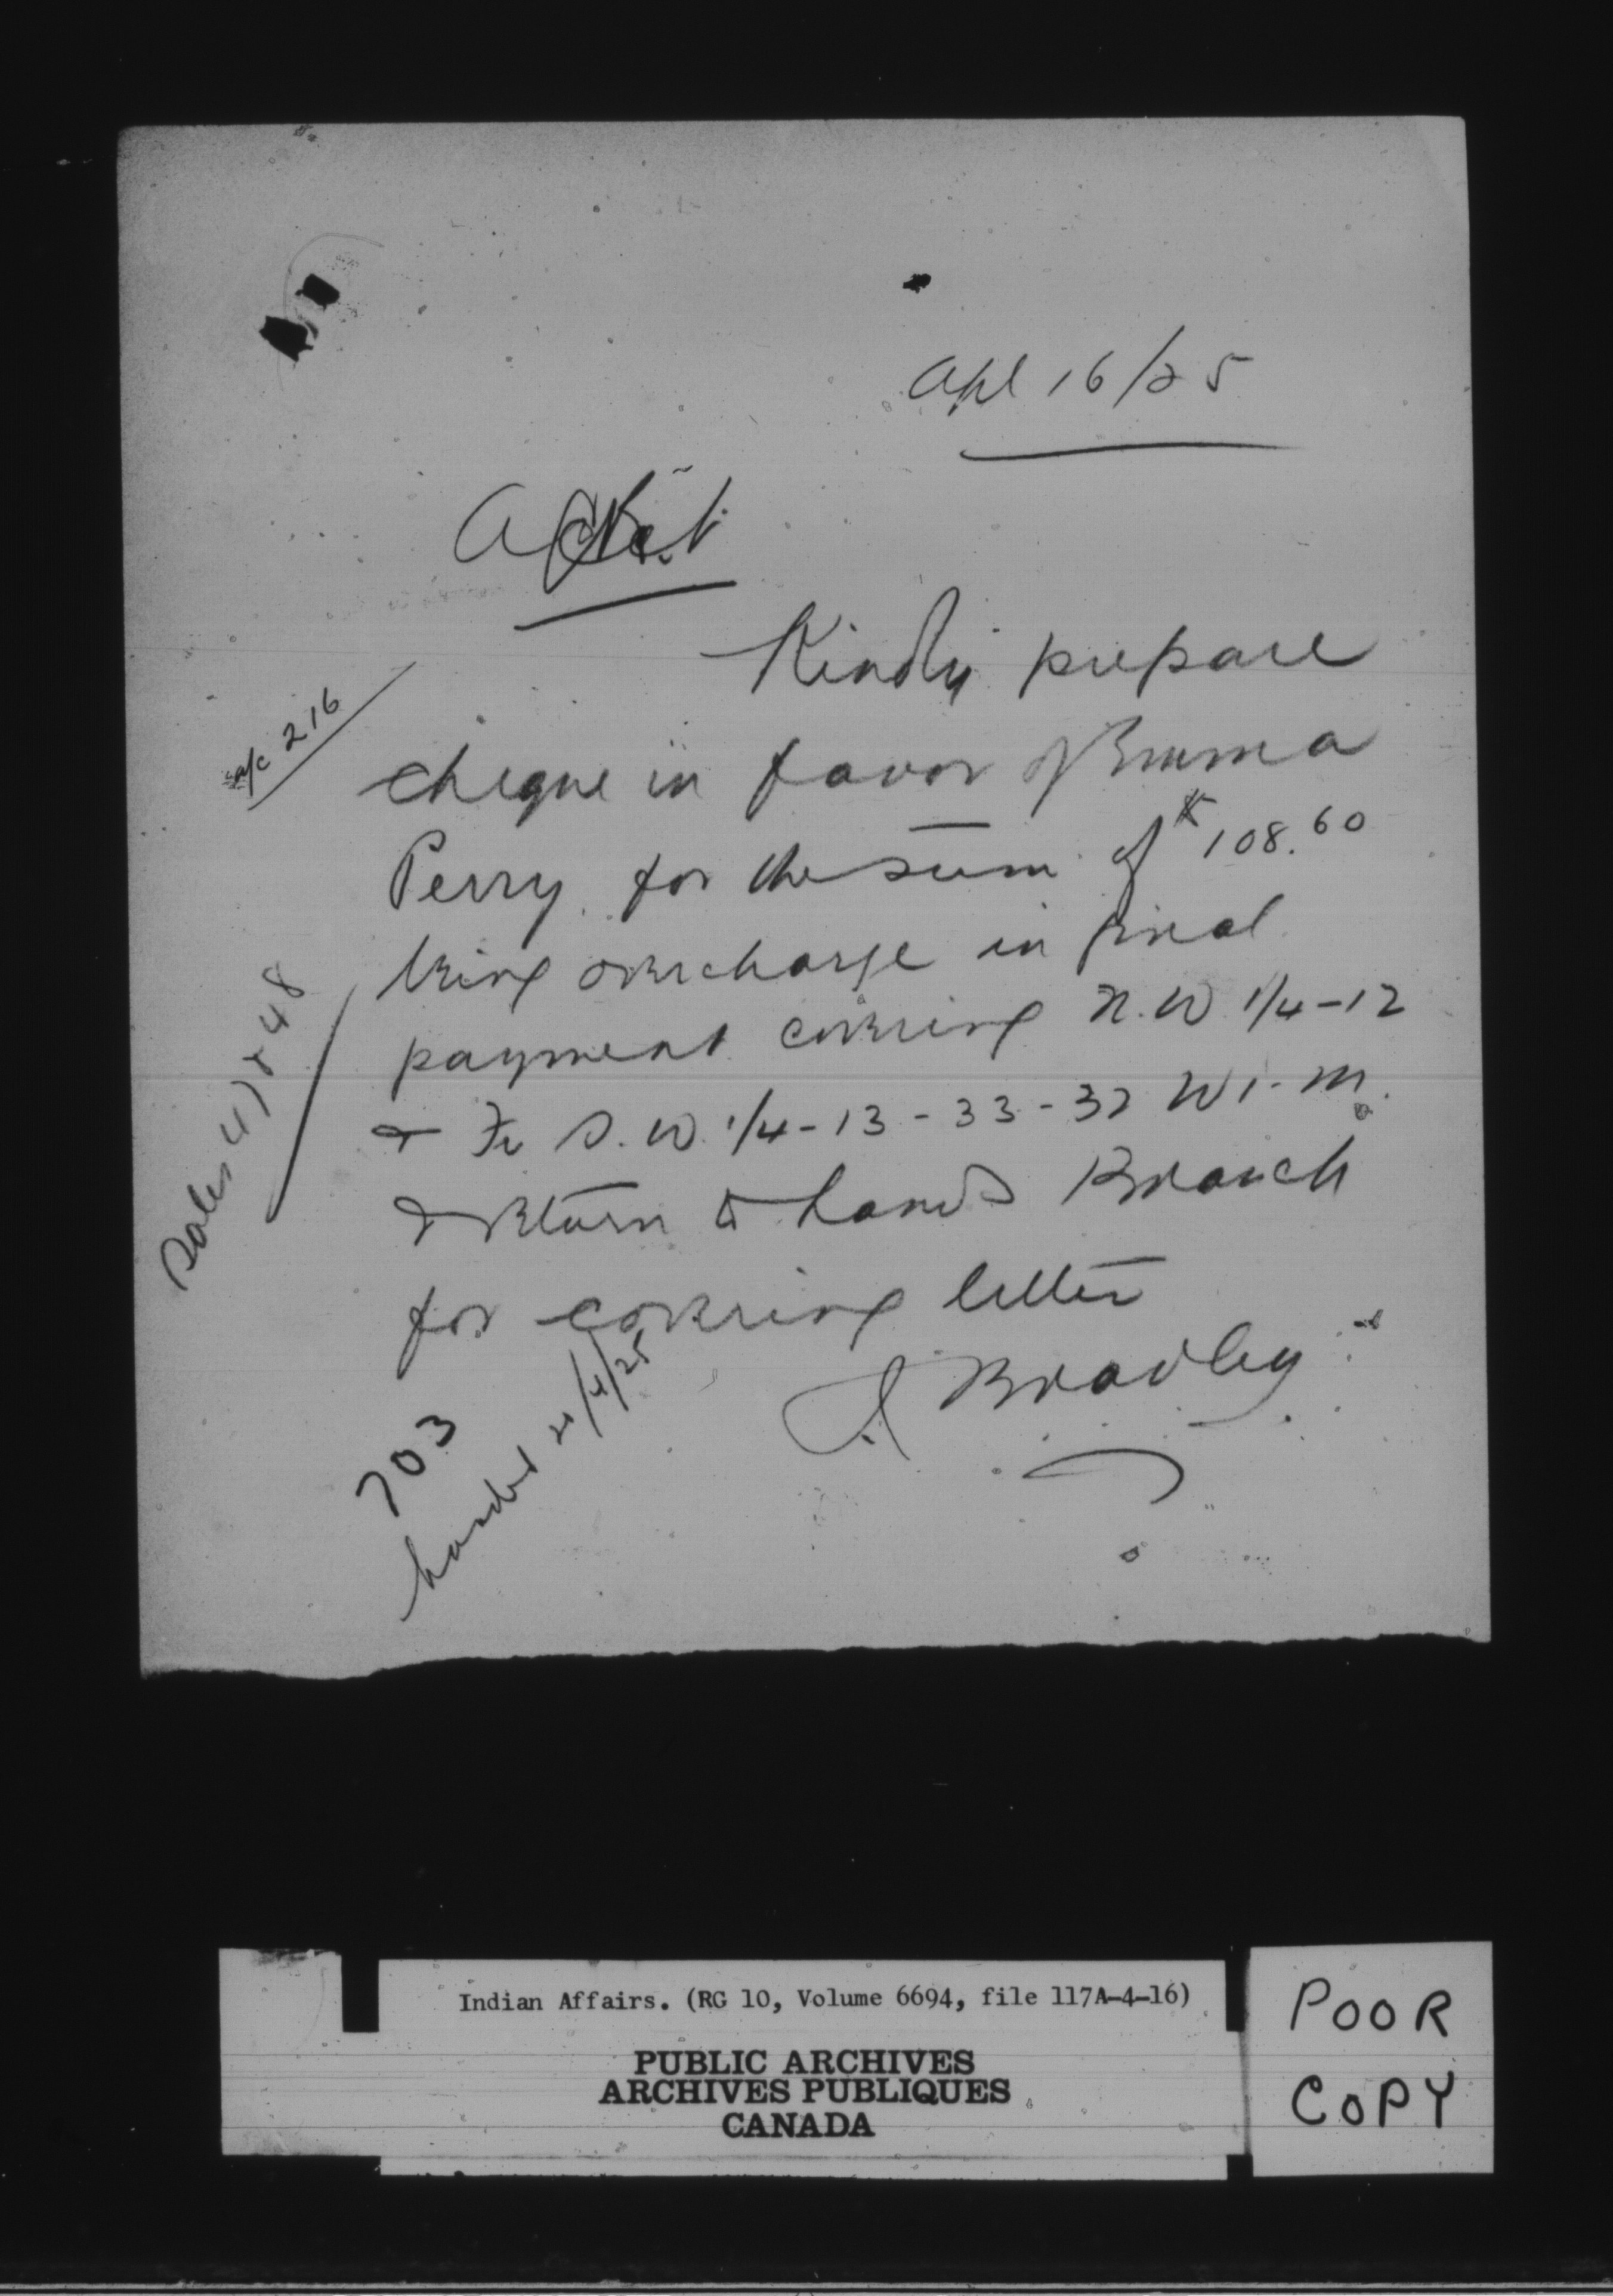 Apl 16/25
Kindly prepare
a/c 216
cheque in favor of Emma
Perry for the sum of $108.60
being overcharge in final
payment covering N.W 1/4-12
& Fr S.W. 1/4-13-33-32 W1.M.
Sales 47 & 48
& return to Lands Branch
for covering letter
A Bradley
703
handed 21/4/25
Indian Affairs. (RG 10, Volume 6694, file 117A-4-16)
PUBLIC ARCHIVES
ARCHIVES PUBLIQUES
CANADA
POOR
COPY